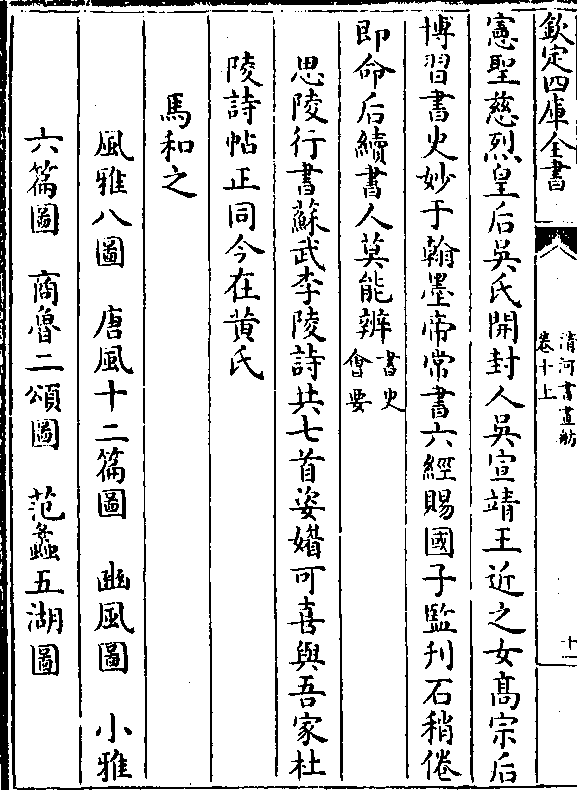 欽定四庫全書
清河書畫舫
卷十上
十一
憲聖慈烈皇后吳氏開封人吳宣靖王近之女髙宗后
博習書史妙于翰墨帝常書六經賜國子監刋石稍倦
即命后續書人莫能辨書史
會要
思陵行書蘇武李陵詩共七首姿媘可喜與吾家杜
陵詩帖正同今在黄氏
馬和之
風雅八圖　唐風十二篇圖　豳風圖　小雅
六篇圖　商魯二頌圖　范蠡五湖圖